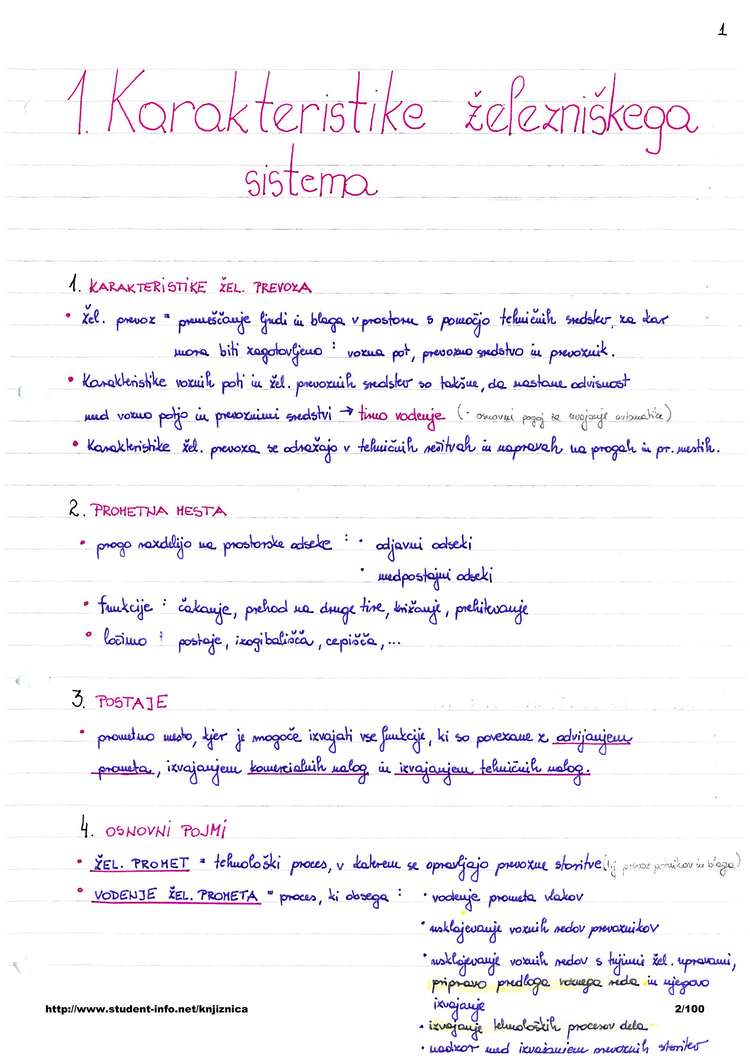 1
1. Karakteristike železniškega
sistema
1. KARAKTERISTIKE ŽEL. PREVOZA
• Žel. prevoz = premeščanje ljudi in blaga v prostoru s pomočjo tehničnih sredstev, za kar
mora biti zagotovljeno : vozna pot, prevozno sredstvo in prevoznik.
• Karakteristike voznih poti in žel. prevoznih sredstev so takšne, da nastane odvisnost
med vozno potjo in prevoznimi sredstvi → tirno vodenje (- osnovni pogoj za uvajanje avtomatike)
• Karakteristike žel. prevoza se odražajo v tehničnih rešitvah in napravah na progah in pr. mestih.
2. PROMETNA MESTA
• progo razdelijo na prostorske odseke : • odjavni odseki
• medpostajni odseki
• funkcije : čakanje, prehod na druge tire, križanje, prehitevanje
• ločimo : postaje, izogibališča, cepišča, ...
3. POSTAJE
• prometno mesto, kjer je mogoče izvajati vse funkcije, ki so povezane z odvijanjem
prometa, izvajanjem komercialnih nalog in izvajanjem tehničnih nalog.
4. OSNOVNI POJMI
• ŽEL. PROMET = tehnološki proces, v katerem se opravljajo prevozne storitve (tj prevoz potnikov in blaga)
• VODENJE ŽEL. PROMETA = proces, ki obsega : • vodenje prometa vlakov
• usklajevanje voznih redov prevoznikov
• usklajevanje voznih redov s tujimi žel. upravami,
pripravo predloga voznega reda in njegovo
izvajanje
• izvajanje tehnoloških procesov dela
• nadzor nad izvajanjem prevoznih storitev
http://www.student-info.net/knjiznica
2/100